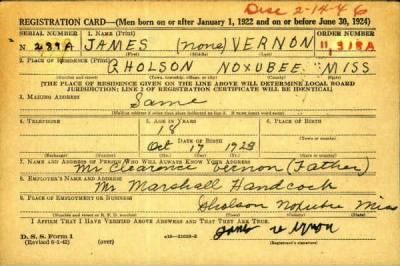 Disc 2-14-46
REGISTRATION CARD—(Men born on or after January 1, 1922 and on or before June 30, 1924)
SERIAL NUMBER 1. Name (Print) ORDER NUMBER
JAMES (none) VERNON 11,318A
(First) (Middle) (Last)
2. PLACE OF RESIDENCE (Print)
GHOLSON NOXUBEE MISS
(Town, township, village, or city) (County) (State)
[THE PLACE OF RESIDENCE GIVEN ON THE LINE ABOVE WILL DETERMINE LOCAL BOARD
JURISDICTION; LINE 2 OF REGISTRATION CERTIFICATE WILL BE IDENTICAL]
3. MAILING ADDRESS
Same
[Mailing address if other than place indicated on line 2. If same insert word same]
4. TELEPHONE 5. AGE IN YEARS 6. PLACE OF BIRTH
18
(Town or county)
DATE OF BIRTH
Oct 17 1923
(Exchange) (Number) (Mo.) (Day) (Yr.) (State or country)
7. NAME AND ADDRESS OF PERSON WHO WILL ALWAYS KNOW YOUR ADDRESS
Mr Clearence Vernon (Father)
8. EMPLOYER'S NAME AND ADDRESS
Mr Marshall Handcock
9. PLACE OF EMPLOYMENT OR BUSINESS
Gholson Noxubee Miss
(Number and street or R. F. D. number) (Town) (County) (State)
I AFFIRM THAT I HAVE VERIFIED ABOVE ANSWERS AND THAT THEY ARE TRUE.
D. S. S. Form 1
James Vernon
(Revised 6-9-42) (over) (Registrant's signature)